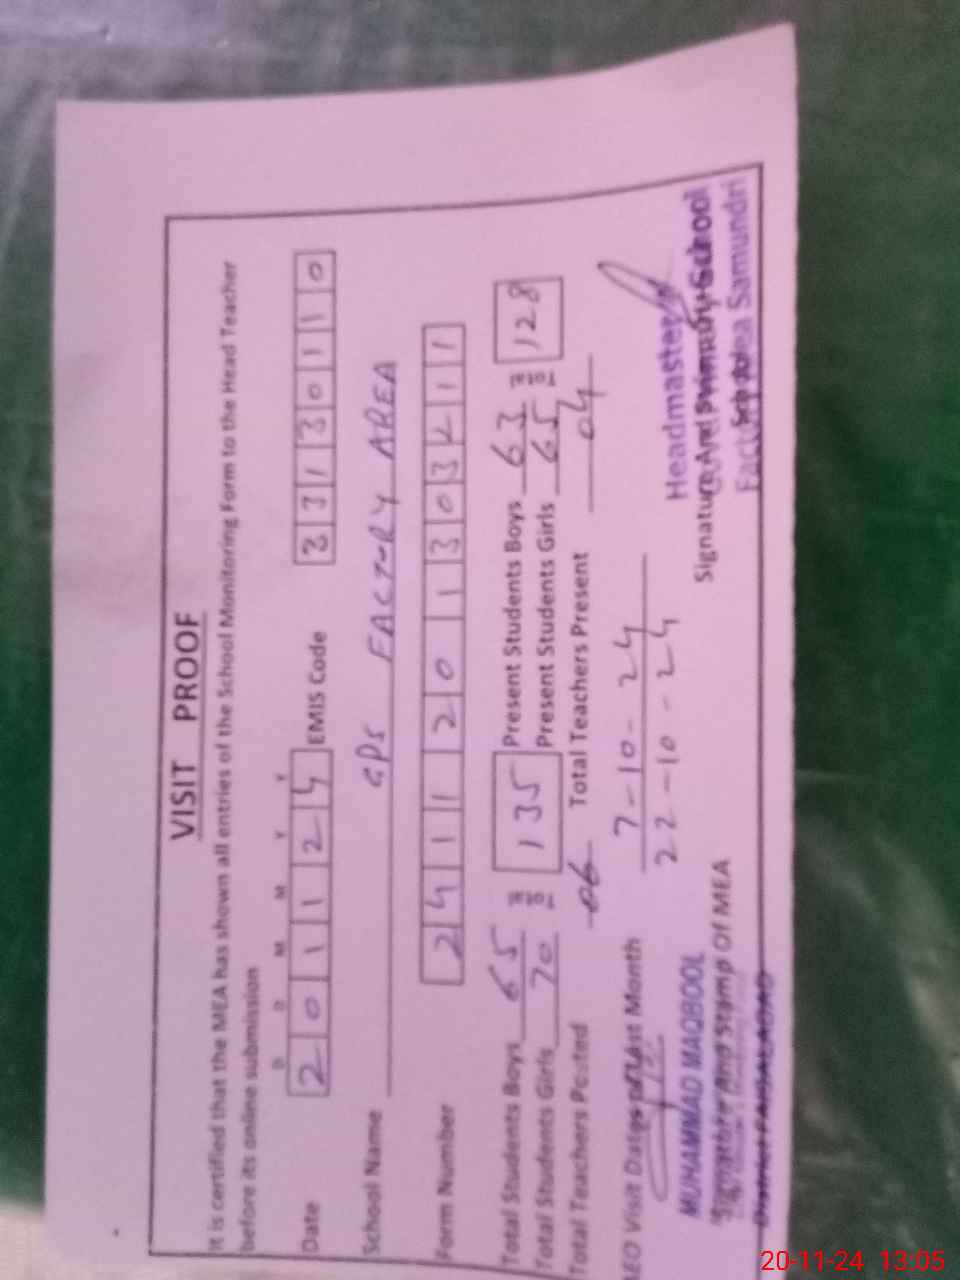 VISIT PROOF
It is certified that the MEA has shown all entries of the School Monitoring Form to the Head Teacher
before its online submission
D D M M Y Y
Date 2 0 1 1 2 4 EMIS Code 3 3 1 3 0 1 1 0
School Name GPS FACTORY AREA
Form Number 2 4 1 1 2 0 1 3 0 3 2 1 1
Total Students Boys 65 135 Present Students Boys 63 128
Total Students Girls 70 Present Students Girls 65
Total Teachers Posted 06 Total Teachers Present 04
AEO Visit Dates of Last Month 7-10-24
22-10-24
MUHAMMAD MAQBOOL
Signature And Stamp Of MEA
District FAISALABAD
Headmaster
Signature And Stamp School
Area Samundri
20-11-24 13:05